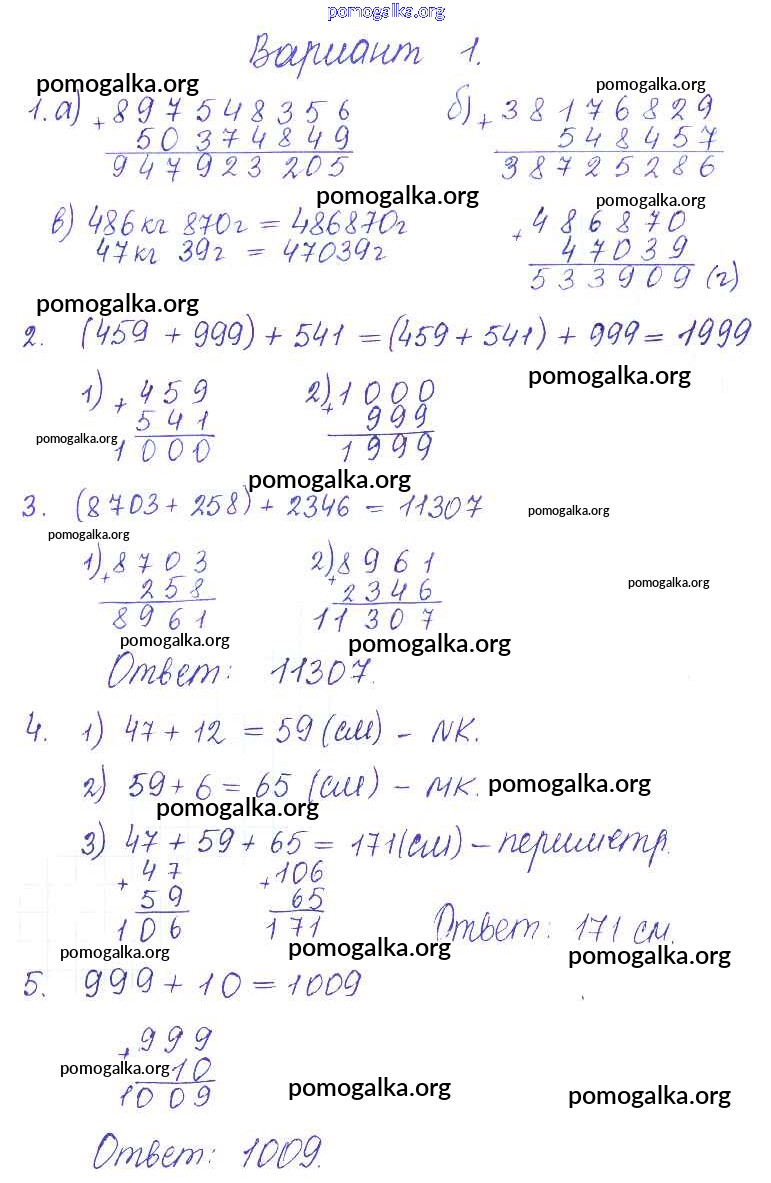 pomogalka.org
Вариант 1.
pomogalka.org pomogalka.org
1. а) + 897548356 б) + 38176829
50374849 548457
947923205 38725286
pomogalka.org pomogalka.org
в) 486кг 870г = 486870г + 486870
47кг 39г = 47039г 47039
533909 (г)
pomogalka.org
2. (459 + 999) + 541 = (459 + 541) + 999 = 1999
pomogalka.org
1) + 459 2) + 1000
541 999
pomogalka.org 1000 1999
pomogalka.org
3. (8703 + 258) + 2346 = 11307 pomogalka.org
pomogalka.org
1) + 8703 2) + 8961
pomogalka.org
258 2346
8961 11307
pomogalka.org pomogalka.org
Ответ: 11307.
4. 1) 47 + 12 = 59 (см) – NK.
2) 59 + 6 = 65 (см) – MK. pomogalka.org
pomogalka.org
3) 47 + 59 + 65 = 171 (см) – периметр.
+ 47 + 106
59 65
106 171 Ответ: 171 см.
pomogalka.org pomogalka.org pomogalka.org
5. 999 + 10 = 1009
+ 999
pomogalka.org 10
1009 pomogalka.org pomogalka.org
Ответ: 1009.